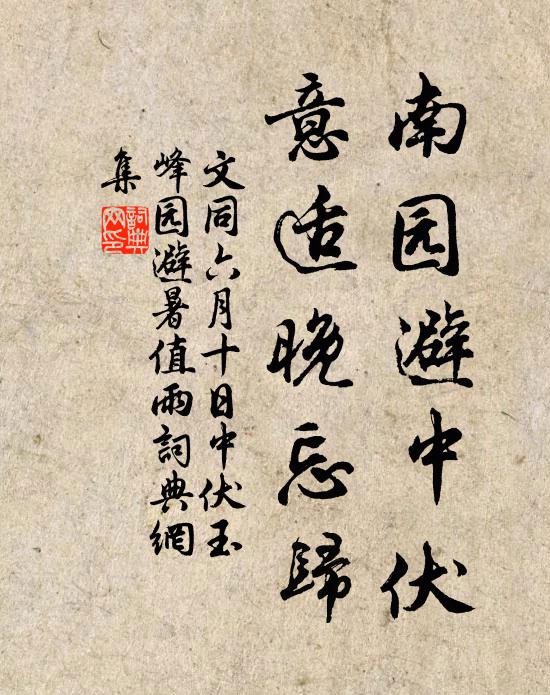 南园避中伏
意适晚忘歸
文同六月十日中伏玉
峰园避暑值雨詞典網
集
詞典
网印